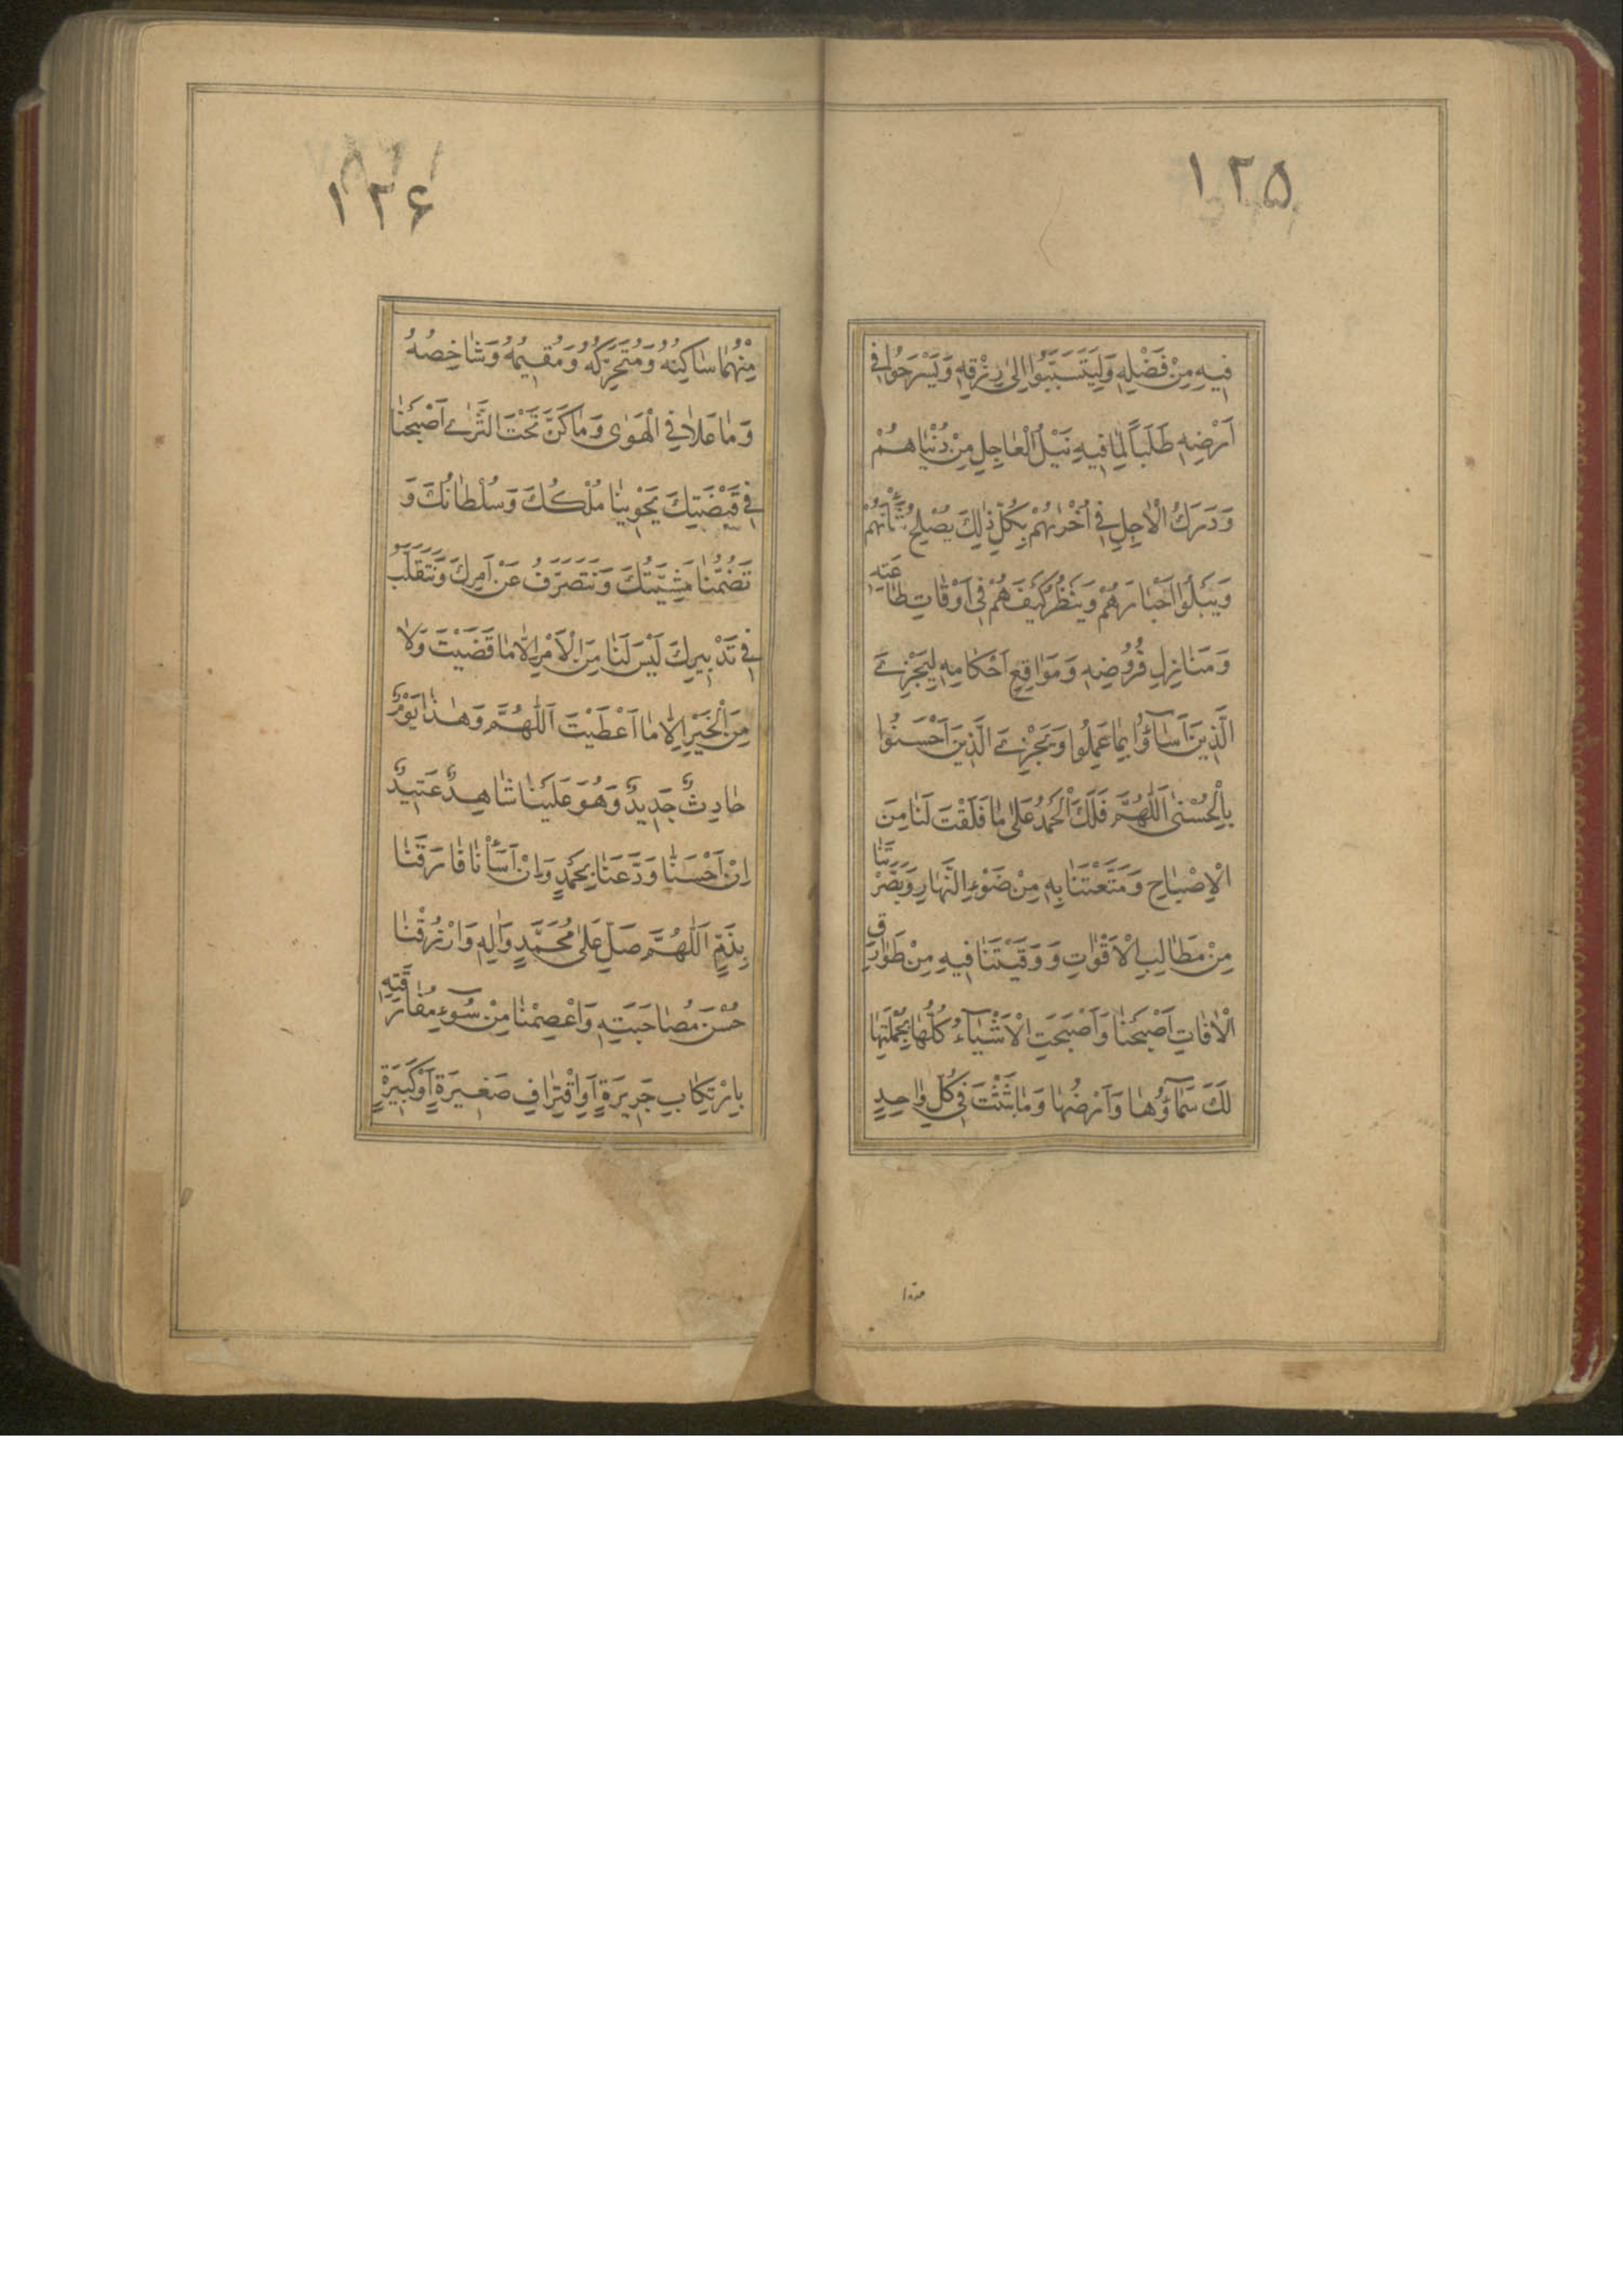 ١٢۵
فِيهِ مِنْ فَضْلِهِ وَلِيَتَسَبَّبُوا اِلىٰ رِزْقِهِ وَيَسْرَحُوا فِي
اَرْضِهِ طَلَباً لِمٰا فِيهِ نَيْلُ الْعٰاجِلِ مِنْ دُنْيٰاهُمْ
وَدَرَكُ الْاٰجِلِ فِي اُخْرٰىهُمْ بِكُلِّ ذٰلِكَ يُصْلِحُ شَأْنَهُمْ
وَيَبْلُوا اَخْبٰارَهُمْ وَيَنْظُرُ كَيْفَ هُمْ فِي اَوْقٰاتِ طٰاعَتِهِ
وَمَنٰازِلِ فُرُوضِهِ وَمَوٰاقِعِ اَحْكٰامِهِ لِيَجْزِيَ
الَّذِينَ اَسٰآؤُا بِمٰا عَمِلُوا وَيَجْزِيَ الَّذِينَ اَحْسَنُوا
بِالْحُسْنىٰ اَللّٰهُمَّ فَلَكَ الْحَمْدُ عَلىٰ مٰا فَلَقْتَ لَنٰا مِنَ
الْاِصْبٰاحِ وَمَتَّعْتَنٰا بِهِ مِنْ ضَوْءِ النَّهٰارِ وَبَصَّرْتَنٰا
مِنْ مَطٰالِبِ الْاَقْوٰاتِ وَوَقَيْتَنٰا فِيهِ مِنْ طَوٰارِقِ
الْاٰفٰاتِ اَصْبَحْنٰا وَاَصْبَحَتِ الْاَشْيٰآءُ كُلُّهٰا بِجُمْلَتِهٰا
لَكَ سَمٰآؤُهٰا وَاَرْضُهٰا وَمٰا بَثَثْتَ فِي كُلِّ وٰاحِدٍ
١٢۶
مِنْهُمٰا سٰاكِنُهُ وَمُتَحَرِّكُهُ وَمُقِيمُهُ وَشٰاخِصُهُ
وَمٰا عَلاٰ فِي الْهَوٰى وَمٰا كَنَّ تَحْتَ الثَّرىٰ اَصْبَحْنٰا
فِي قَبْضَتِكَ يَحْوِينٰا مُلْكُكَ وَسُلْطٰانُكَ وَ
تَضُمُّنٰا مَشِيَّتُكَ وَنَتَصَرَّفُ عَنْ اَمْرِكَ وَنَتَقَلَّبُ
فِي تَدْبِيرِكَ لَيْسَ لَنٰا مِنَ الْاَمْرِ اِلّٰا مٰا قَضَيْتَ وَلاٰ
مِنَ الْخَيْرِ اِلّٰا مٰا اَعْطَيْتَ اَللّٰهُمَّ وَهٰذٰا يَوْمٌ
حٰادِثٌ جَدِيدٌ وَهُوَ عَلَيْنٰا شٰاهِدٌ عَتِيدٌ
اِنْ اَحْسَنّٰا وَدَّعَنٰا بِحَمْدٍ وَاِنْ اَسَأْنٰا فٰارَقَنٰا
بِذَمٍّ اَللّٰهُمَّ صَلِّ عَلىٰ مُحَمَّدٍ وَاٰلِهِ وَارْزُقْنٰا
حُسْنَ مُصٰاحَبَتِهِ وَاعْصِمْنٰا مِنْ سُوٓءِ مُفٰارَقَتِهِ
بِارْتِكٰابِ جَرِيرَةٍ اَوِ اقْتِرٰافِ صَغِيرَةٍ اَوْ كَبِيرَةٍ